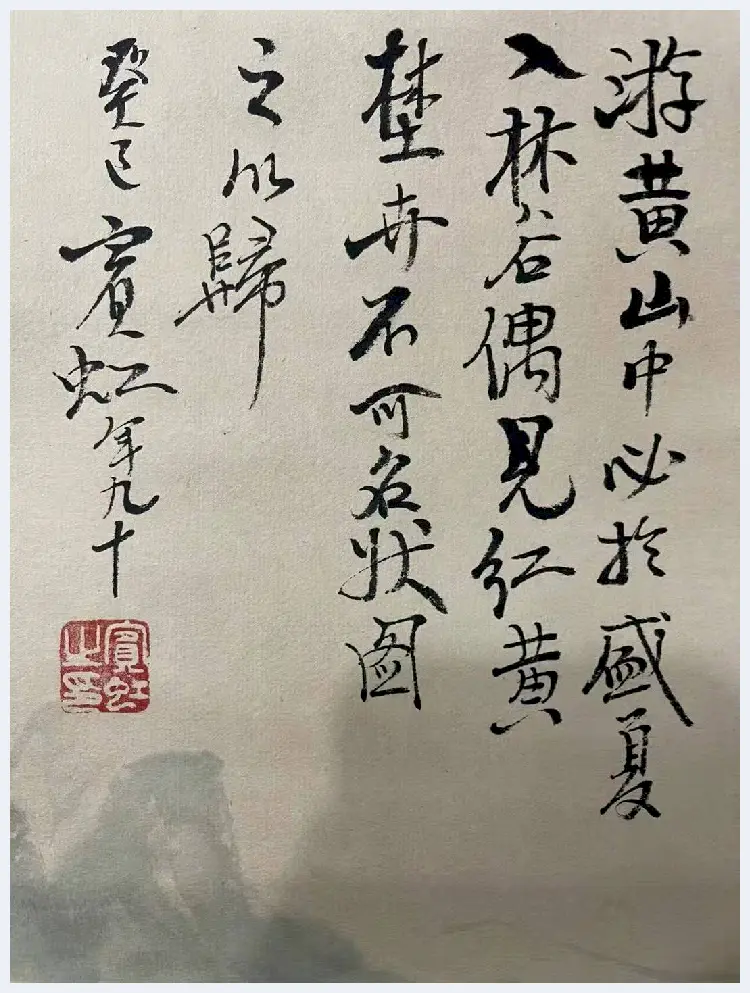 游黄山中必於盛夏
入林谷偶見红黄
埜卉不可名狀图
之以歸
癸巳賓虹年九十
賓虹之印